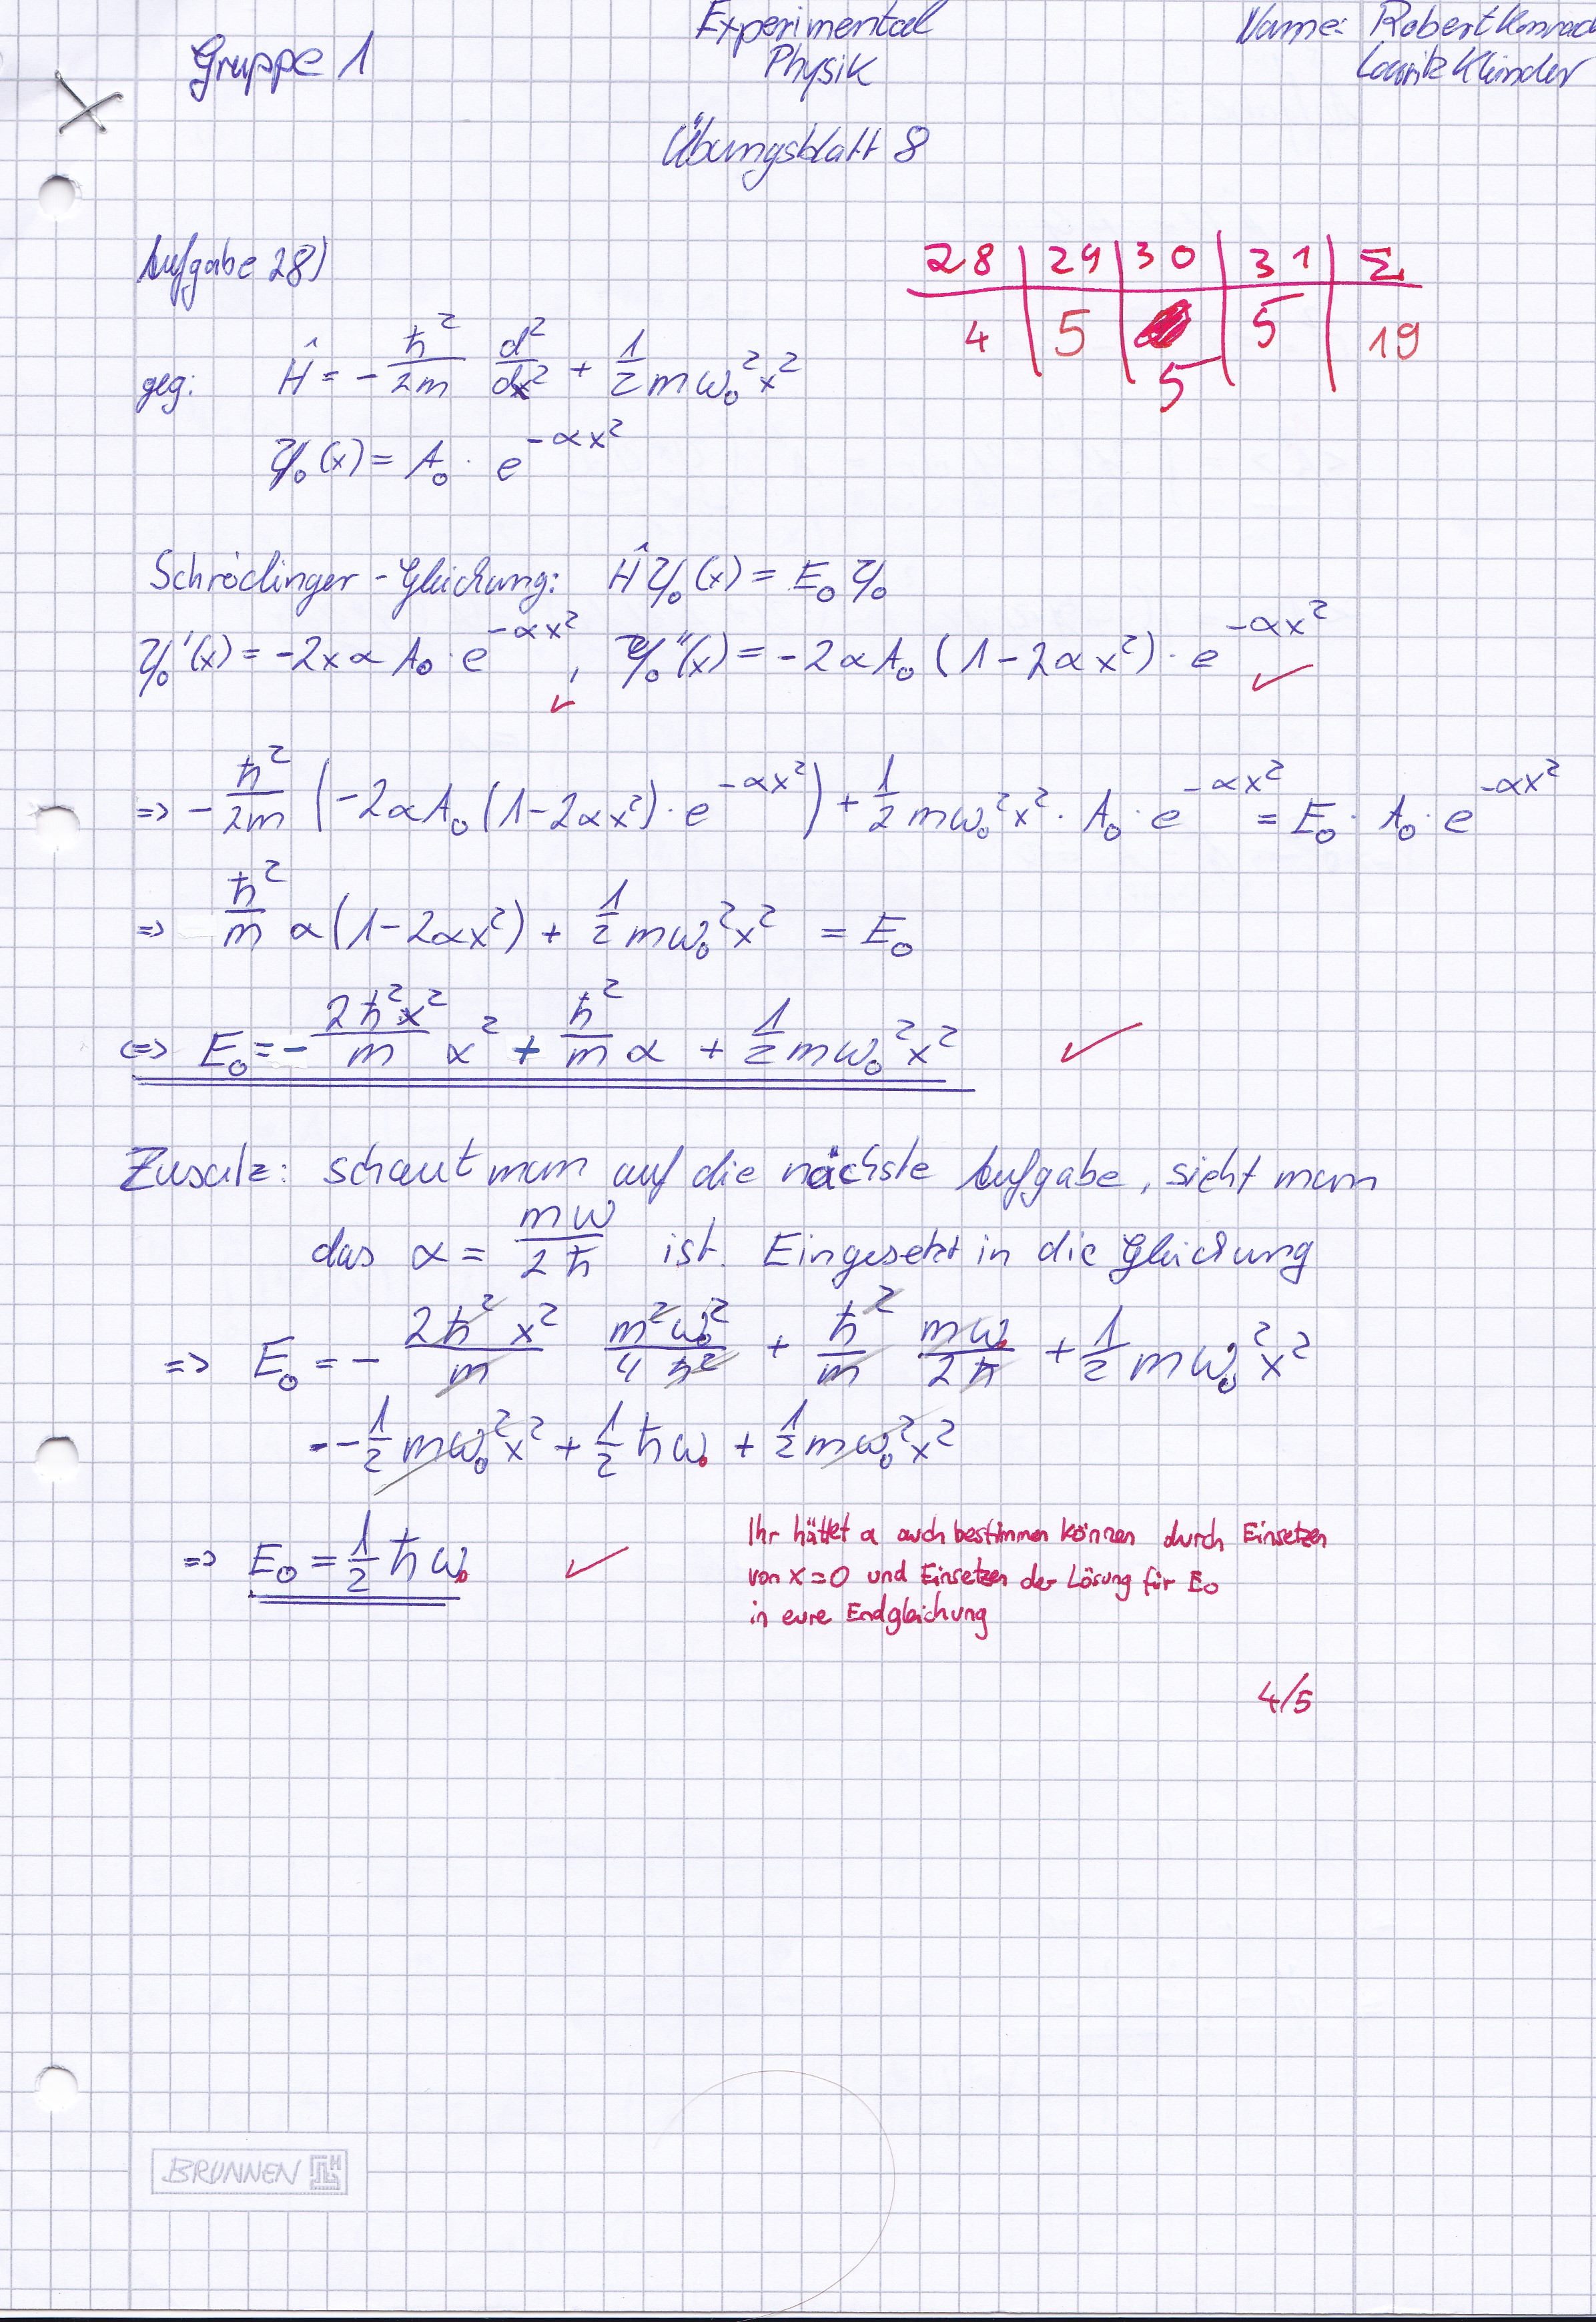 Gruppe 1
Experimental
Physik
Name: Robert Konrad
Lauritz Klünder
Übungsblatt 8
28 | 29 | 30 | 31 | Σ
4 | 5 | 5 | 5 | 19
Aufgabe 28)
geg: Ĥ = - ħ²/2m d²/dx² + 1/2 mω₀²x²
Ψ₀(x) = A₀ · e^(-αx²)
Schrödinger-Gleichung: ĤΨ₀(x) = E₀Ψ₀
Ψ₀'(x) = -2xαA₀ · e^(-αx²), Ψ₀''(x) = -2αA₀(1-2αx²) · e^(-αx²)
=> - ħ²/2m (-2αA₀(1-2αx²) · e^(-αx²)) + 1/2 mω₀²x² · A₀ · e^(-αx²) = E₀ · A₀ · e^(-αx²)
=> ħ²/m α(1-2αx²) + 1/2 mω₀²x² = E₀
<=> E₀ = - 2ħ²x²/m α² + ħ²/m α + 1/2 mω₀²x²
Zusatz: schaut man auf die nächste Aufgabe, sieht man
das α = mω/2ħ ist. Eingesetzt in die Gleichung
=> E₀ = - 2ħ²x²/m m²ω₀²/4ħ² + ħ²/m mω₀/2ħ + 1/2 mω₀²x²
= - 1/2 mω₀²x² + 1/2 ħω₀ + 1/2 mω₀²x²
=> E₀ = 1/2 ħω₀
Ihr hättet α auch bestimmen können durch Einsetzen
von x=0 und Einsetzen der Lösung für E₀
in eure Endgleichung
4/5
BRUNNEN